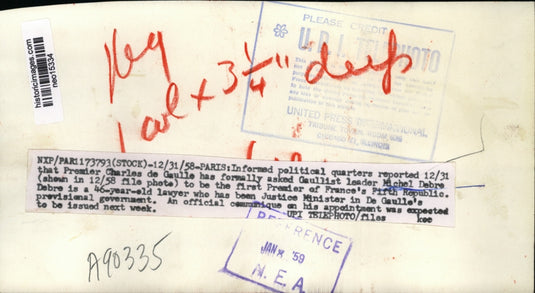 historicimages.com
neo15334
PLEASE CREDIT
U.P.I. TELEPHOTO
UNITED PRESS INTERNATIONAL
TRIBUNE TOWER, ROOM
CHICAGO 11, ILLINOIS
1 col x 3 1/4" deep
NXP/PAR1173793(STOCK)-12/31/58-PARIS:Informed political quarters reported 12/31
that Premier Charles de Gaulle has formally asked Gaullist leader Michel Debre
(shown in 12/58 file photo) to be the first Premier of France's Fifth Republic.
Debre is a 46-year-old lawyer who has been Justice Minister in De Gaulle's
provisional government. An official communique on his appointment was expected
to be issued next week. UPI TELEPHOTO/files kee
REFERENCE
JAN 59
N.E.A.
A90335